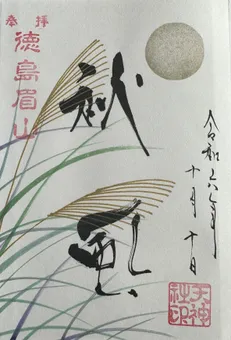 奉拝
徳島眉山
秋
令和六年
十月十日
天神
社印